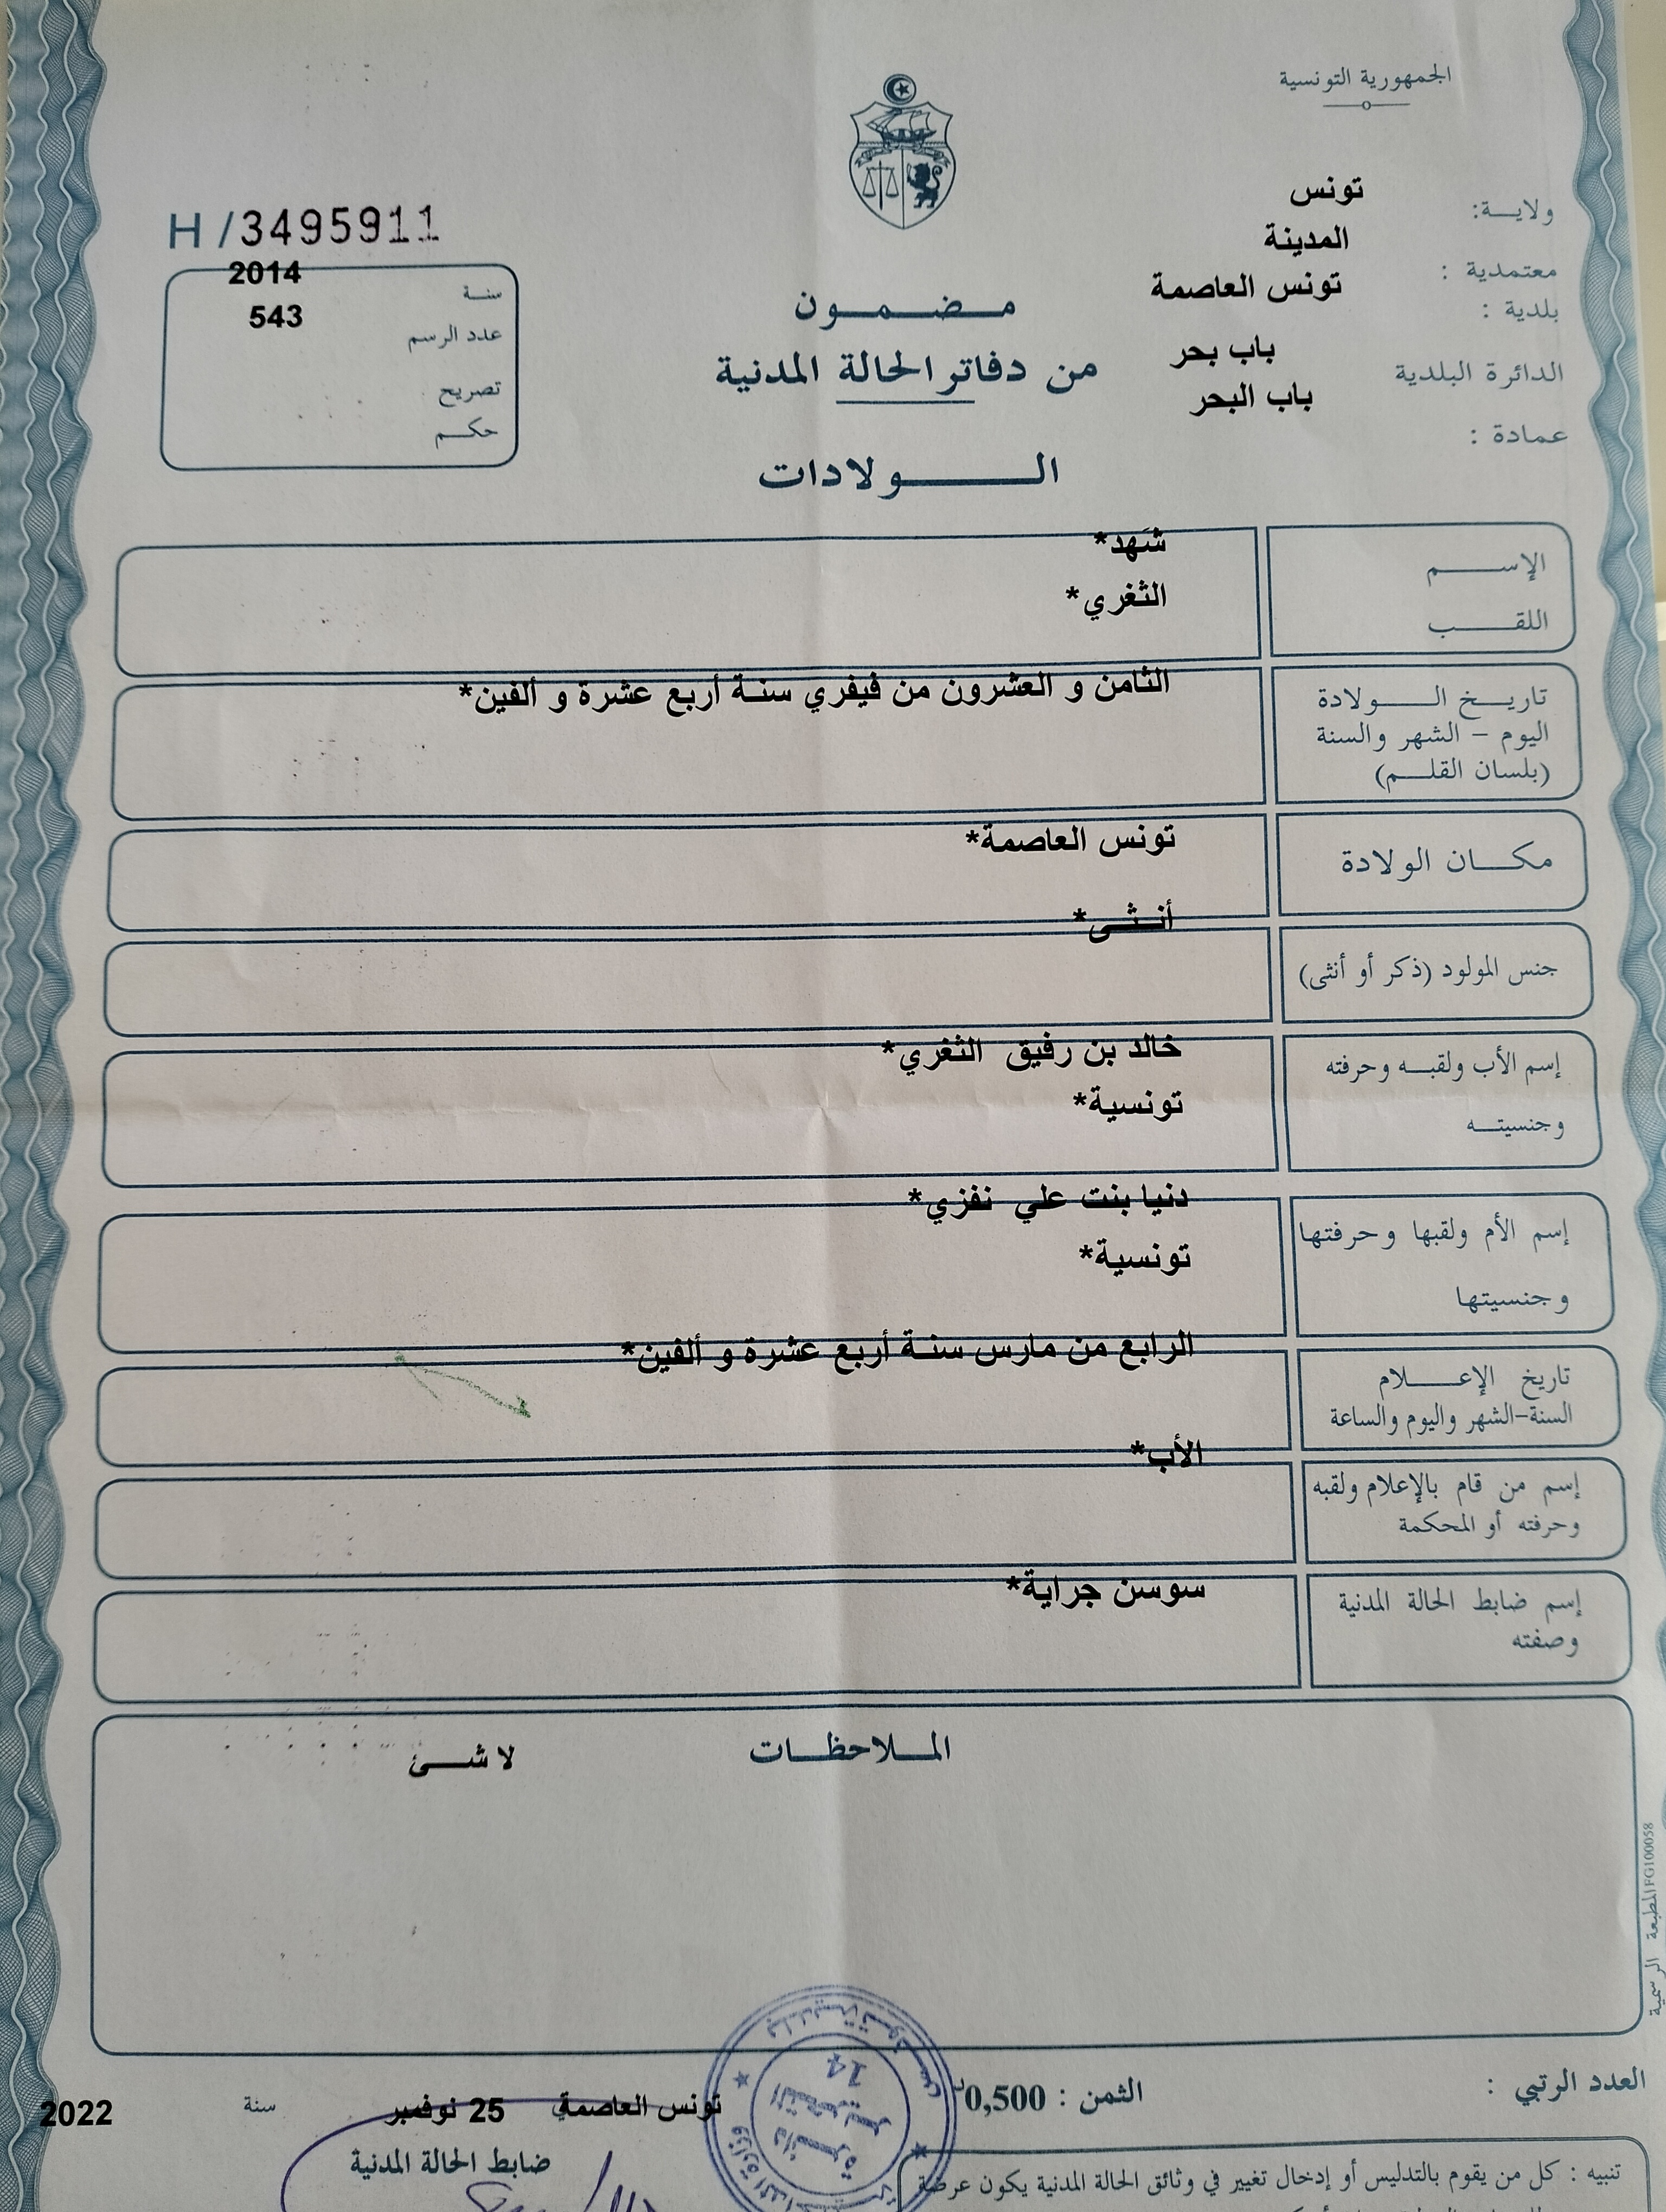 الجمهورية التونسية
ولاية: تونس
معتمدية : المدينة
بلدية : تونس العاصمة
الدائرة البلدية باب بحر
عمادة : باب البحر
H/3495911
سنة 2014
عدد الرسم 543
تصريح
حكم
مضمون
من دفاتر الحالة المدنية
الولادات
الإسم شهد*
اللقب الثغري*
تاريخ الولادة الثامن و العشرون من فيفري سنة أربع عشرة و ألفين*
اليوم - الشهر والسنة
(بلسان القلم)
مكان الولادة تونس العاصمة*
جنس المولود (ذكر أو أنثى) أنثى*
إسم الأب ولقبه وحرفته خالد بن رفيق الثغري*
وجنسيته تونسية*
إسم الأم ولقبها وحرفتها دنيا بنت علي نفزي*
وجنسيتها تونسية*
تاريخ الإعلام الرابع من مارس سنة أربع عشرة و ألفين*
السنة-الشهر واليوم والساعة
إسم من قام بالإعلام ولقبه الأب*
وحرفته أو المحكمة
إسم ضابط الحالة المدنية سوسن جراية*
وصفته
الملاحظات
لا شئ
المطبعة الرسمية FG100058
العدد الرتبي :
الثمن : 0,500د
تونس العاصمة في 25 نوفمبر سنة 2022
ضابط الحالة المدنية
14
دائرة
تنبيه : كل من يقوم بالتدليس أو إدخال تغيير في وثائق الحالة المدنية يكون عرضة